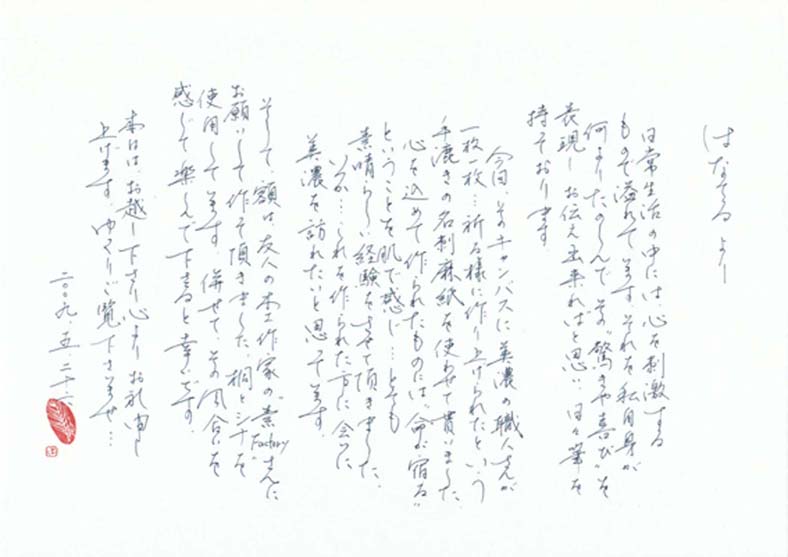 はなてる より
日常生活の中には、心を刺激する
もので溢れています。それを私自身が
何よりたのしんで、その"驚きや喜び"を
表現し お伝え出来ればと思い、日々筆を
持っております。
今回、そのキャンバスに 美濃の職人さんが
一枚一枚…祈る様に作り上げられたという
手漉きの名刺麻紙を使わせて貰いました。
心を込めて作られたものには、"命が宿る"
ということを肌で感じ…とても
素晴らしい経験をさせて頂きました。
いつか…これを作られた方に会いに
美濃を訪れたいと思っています。
そして、額は、友人の木工作家の 
Factoryさんに
お願いして 作って頂きました。桐とシナを
使用しています。併せて、その風合いを
感じて楽しんで下さると幸いです。
本日は、お越し下さり心より お礼申し
上げます。ゆっくりご覧下さいませ…
二〇〇九.五.二十六